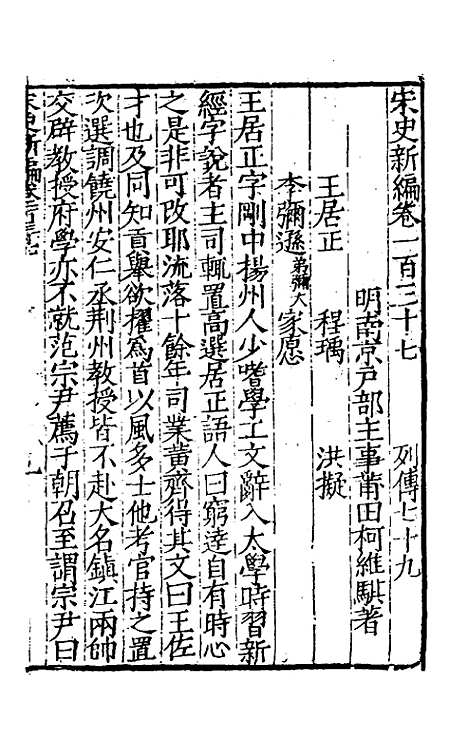 宋史新編卷一百三十七　列傳七十九
明南京戶部主事莆田柯維騏著
王居正　程瑀　洪擬
李彌遜弟彌大　家愿
王居正字剛中揚州人少嗜學工文辭入太學時習新
經字說者主司輒置高選居正語人曰窮達自有時心
之是非可改耶流落十餘年司業黃齊得其文曰王佐
才也及同知貢舉欲擢爲首以風多士他考官持之置
次選調饒州安仁丞荆州教授皆不赴大名鎮江兩帥
交辟教授府學亦不就范宗尹薦于朝召至謂宗尹曰
宋史新編卷一百三十七